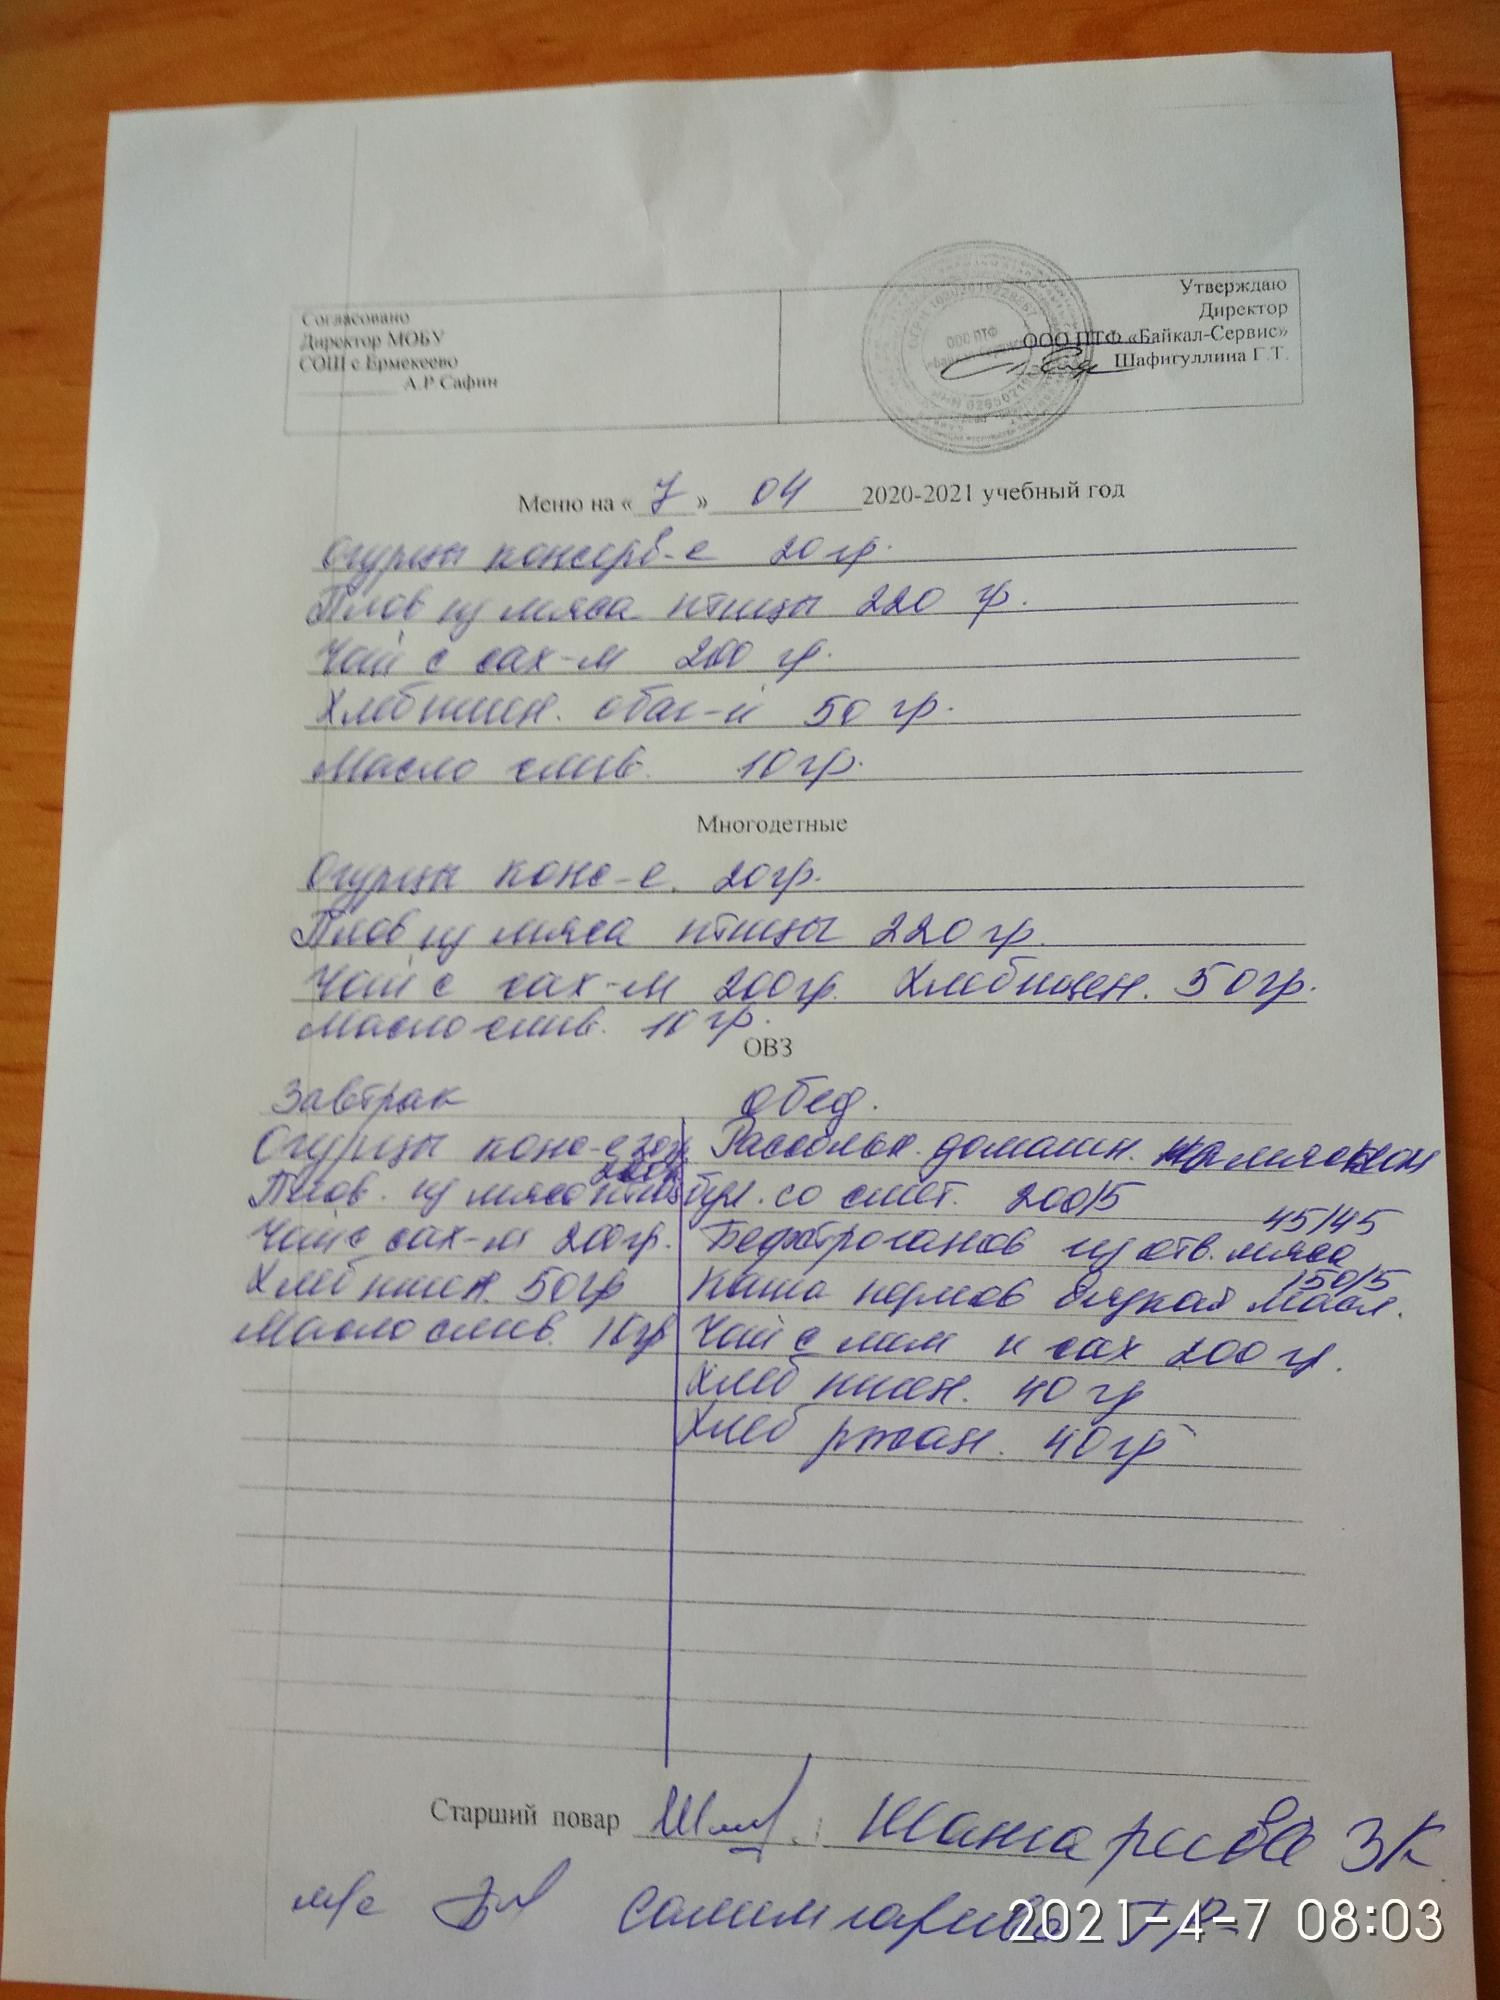 Согласовано
Директор МОБУ
СОШ с Ермекеево
А.Р Сафин
Утверждаю
Директор
ООО ПТФ «Байкал-Сервис»
Шафигуллина Г.Т.
ООО ПТФ
Меню на « 7 » 04 2020-2021 учебный год
Огурцы консерв-е 20 гр.
Плов из мяса птицы 220 гр.
Чай с сах-м 200 гр.
Хлеб пшен. обог-й 50 гр.
Масло слив. 10 гр.
Многодетные
Огурцы конс-е. 20 гр.
Плов из мяса птицы 220 гр.
Чай с сах-м 200 гр. Хлеб пшен. 50 гр.
Масло слив. 10 гр.
ОВЗ
Завтрак
Огурцы конс-е 20 гр.
Плов. из мяса птицы
Чай с сах-м 200 гр.
Хлеб пшен. 50 гр
Масло слив. 10 гр
Обед.
Рассольн. домашн. на мясном
бул. со смет. 200/5
45/45
Бефстроганов из отв. мяса
150/5
Каша перлов вязкая масл.
Чай с лим и сах 200 гр.
Хлеб пшен. 40 гр
Хлеб ржан. 40 гр
Старший повар
ЗК
м/с
2021-4-7 08:03